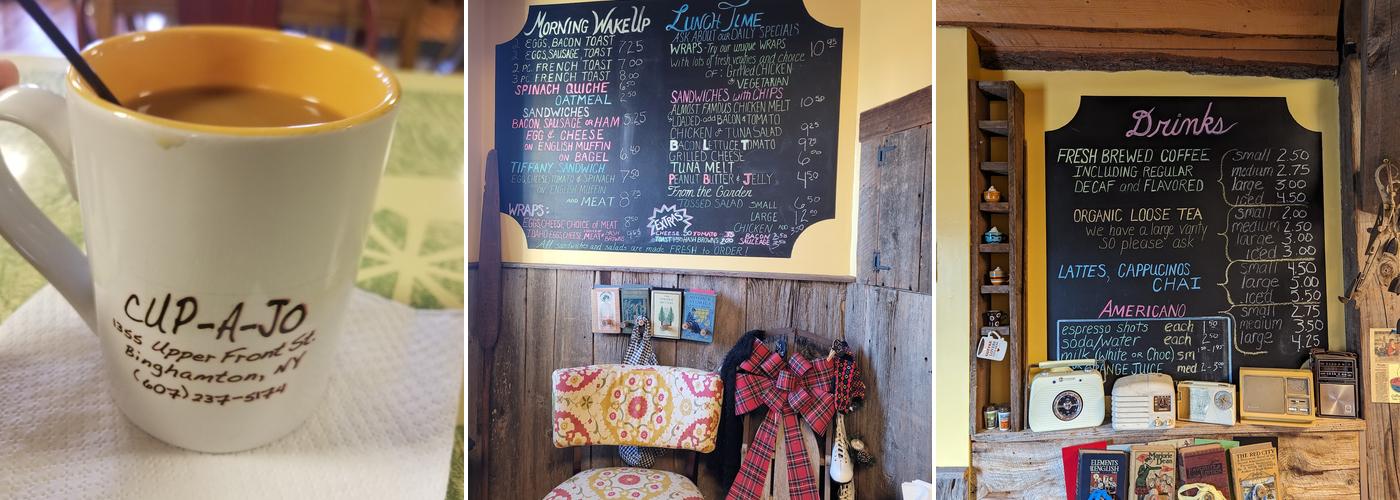 CUP-A-JO
1355 Upper Front St.
Binghamton, NY
(607) 237-5174
MORNING WAKE UP
2 EGGS, BACON TOAST 7.25
2 EGGS, SAUSAGE, TOAST
2 PC FRENCH TOAST 7.00
3 PC FRENCH TOAST 8.00
SPINACH QUICHE
OATMEAL
SANDWICHES
BACON SAUSAGE OR HAM 5.25
EGG & CHEESE
ON ENGLISH MUFFIN
ON BAGEL 6.40
TIFFANY SANDWICH
EGG, CHEESE, TOMATO & SPINACH 7.50
ON ENGLISH MUFFIN
AND MEAT 8.75
WRAPS:
EGGS, CHEESE, CHOICE of MEAT 8.50
IDAHO EGGS, CHEESE, MEAT, HASH BROWNS
LUNCH TIME
ASK ABOUT our DAILY SPECIALS
WRAPS - Try our unique WRAPS 10.95
With lots of fresh veggies and choice
OF: Grilled CHICKEN
or VEGETARIAN
SANDWICHES with CHIPS
ALMOST FAMOUS CHICKEN MELT 10.50
LOADED-add BACON & TOMATO
CHICKEN or TUNA SALAD 9.25
BACON LETTUCE TOMATO
GRILLED CHEESE 6.00
TUNA MELT
PEANUT BUTTER & JELLY 4.50
From the Garden
TOSSED SALAD SMALL
LARGE
CHICKEN
EXTRAS
CHEESE .50 TOMATO .75 BACON
TOAST HASH BROWNS SAUSAGE
All sandwiches and salads are made FRESH to ORDER!
Drinks
FRESH BREWED COFFEE small 2.50
INCLUDING REGULAR medium 2.75
DECAF and FLAVORED large 3.00
iced 4.50
ORGANIC LOOSE TEA small 2.00
We have a large variety medium 2.50
SO please ask! large 3.00
iced 3.00
LATTES, CAPPUCINOS small 4.50
CHAI large 5.00
iced 5.50
AMERICANO small 2.75
medium 3.50
large 4.25
espresso shots each
soda/water each
milk (White or Choc) sm
ORANGE JUICE med
ELEMENTS
ENGLISH
Marjorie
Dean
THE RED CITY